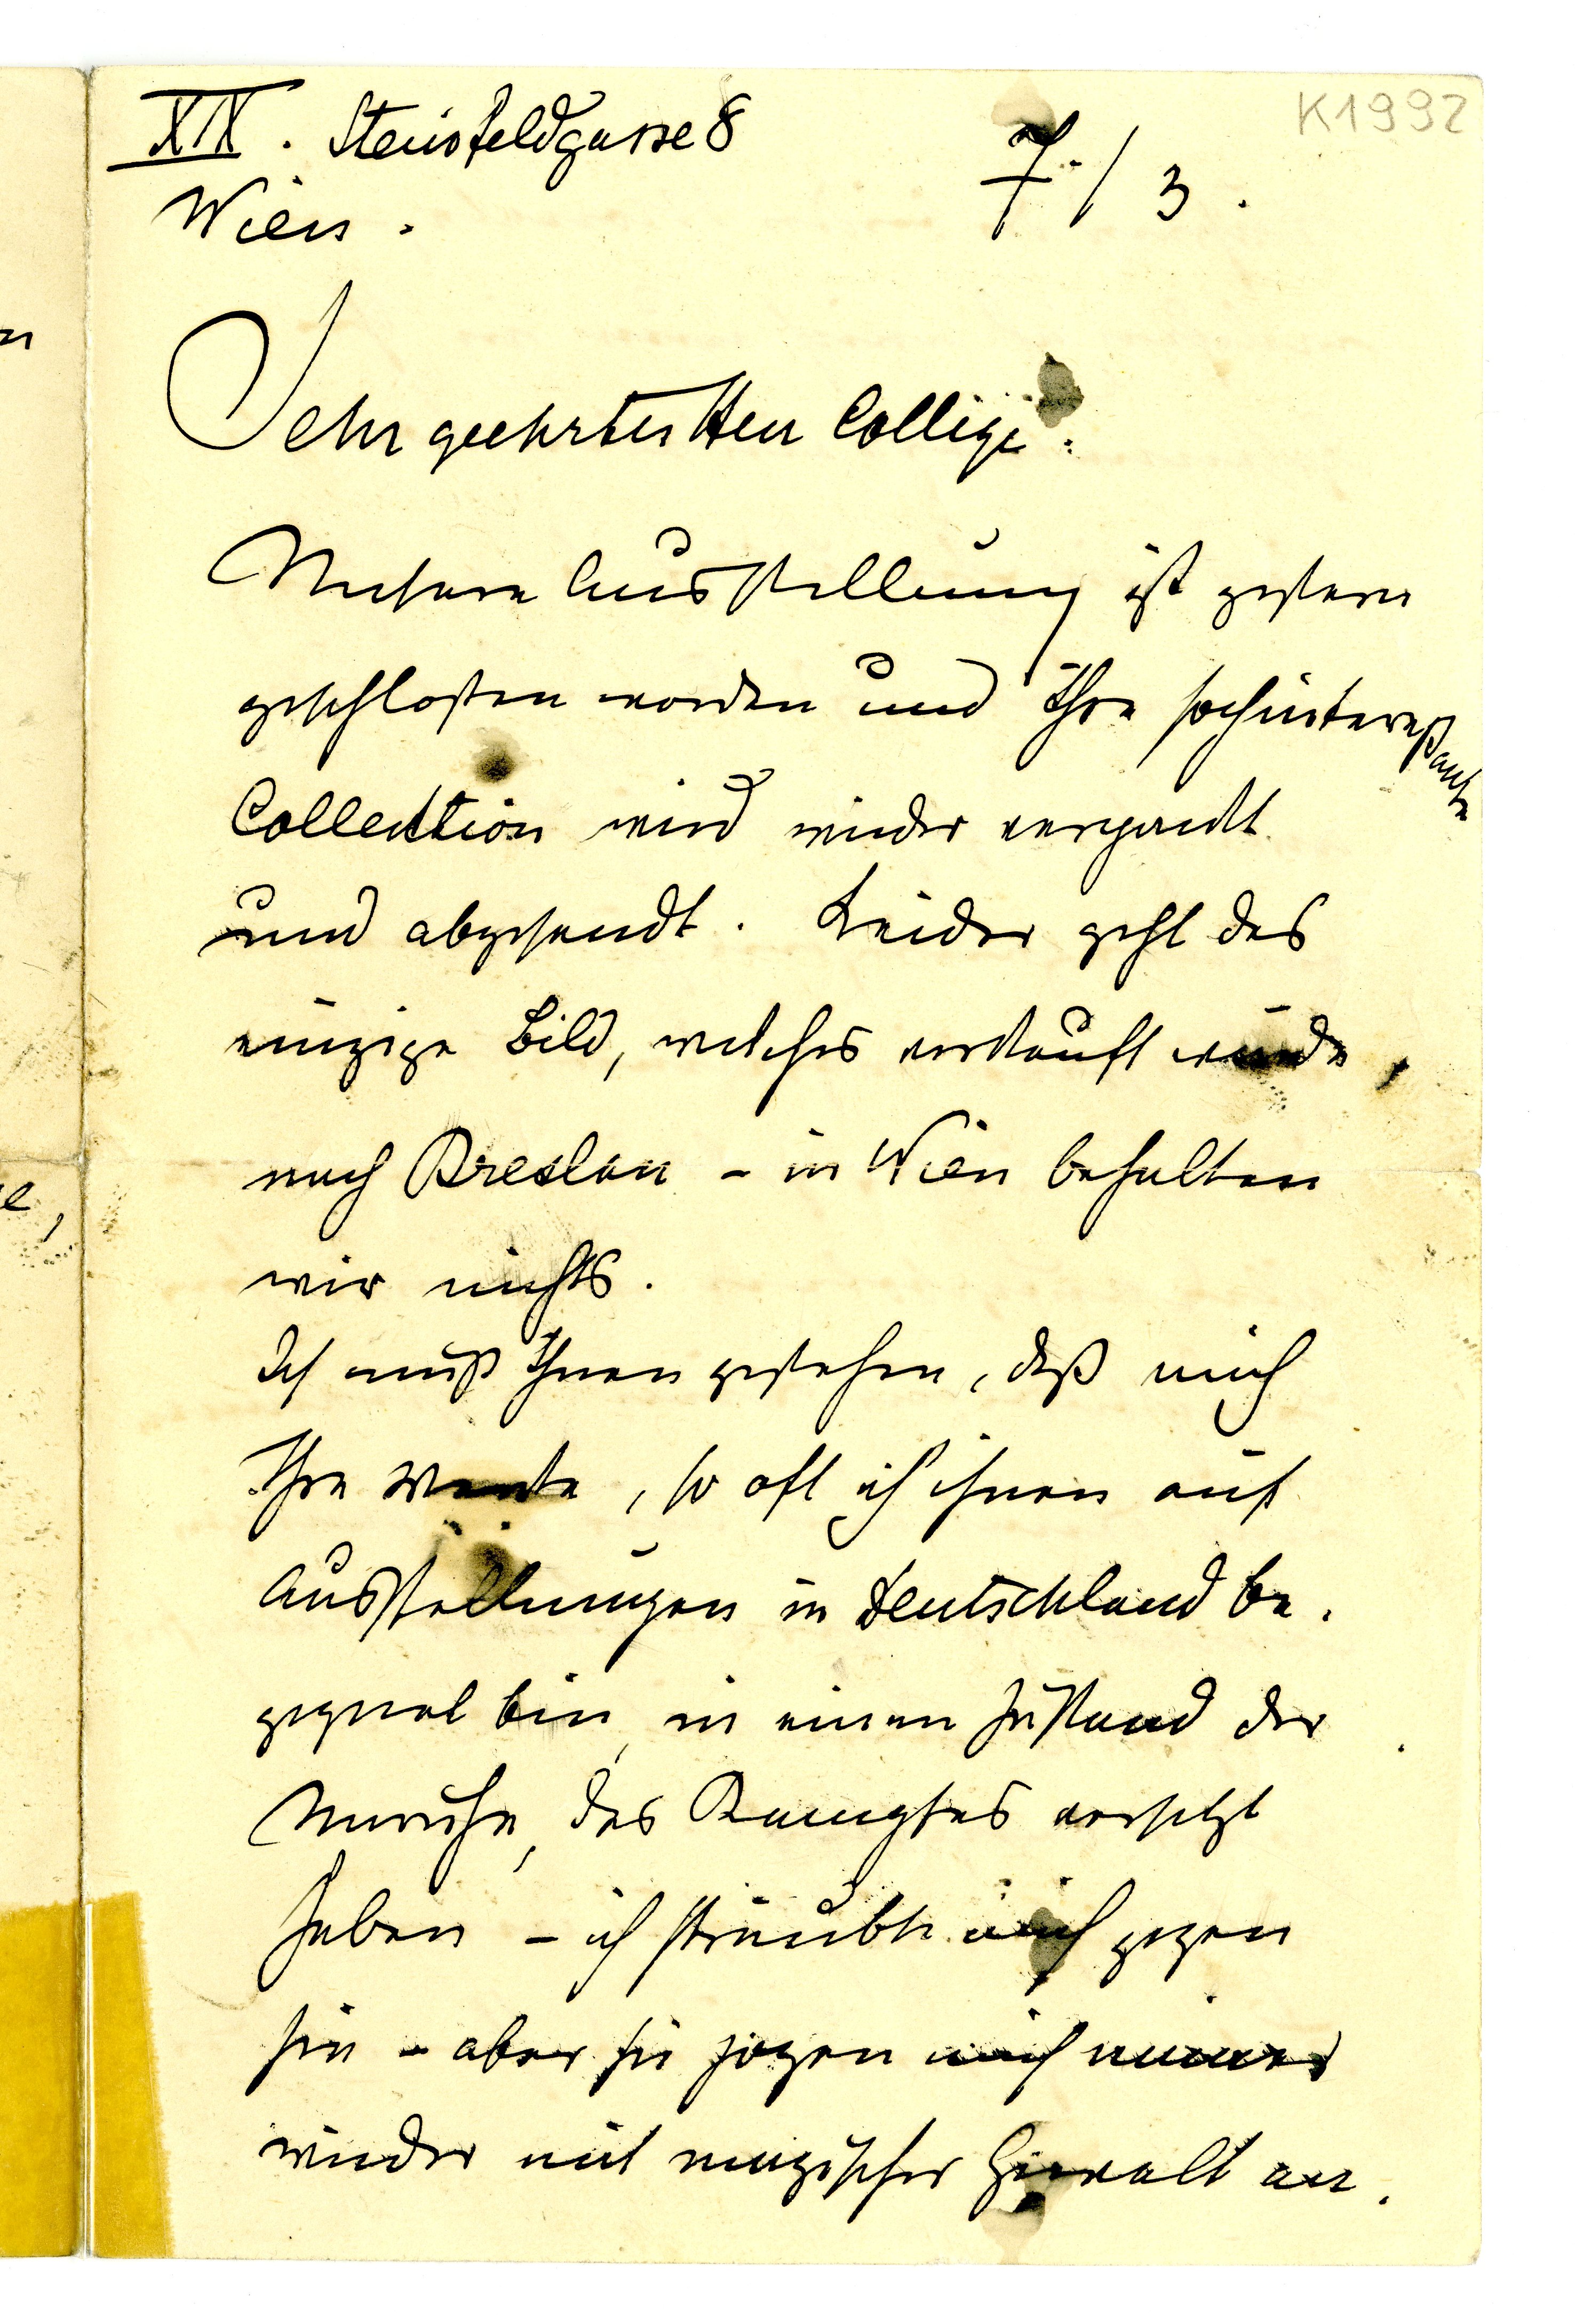 K1992
XIX. Steinfeldgasse 8
7./3.
Wien.
Sehr geehrter Herr College:
Unsere Ausstellung ist gestern
geschloßen worden und Ihre hochintereßante
Collection wird wieder verpackt
und abgesendt. Leider geht das
einzige Bild, welches verkauft wurde,
nach Breslau – in Wien behalten
wir nichts.
Ich muß Ihnen gestehen, daß mich
Ihre Werke, so oft ich ihnen auf
Ausstellungen in Deutschland be-
gegnet bin, in einen Zustand der
Unruhe, des Kampfes versetzt
haben – ich sträubte mich gegen
sie – aber sie zogen mich immer
wieder mit magischer Gewalt an.